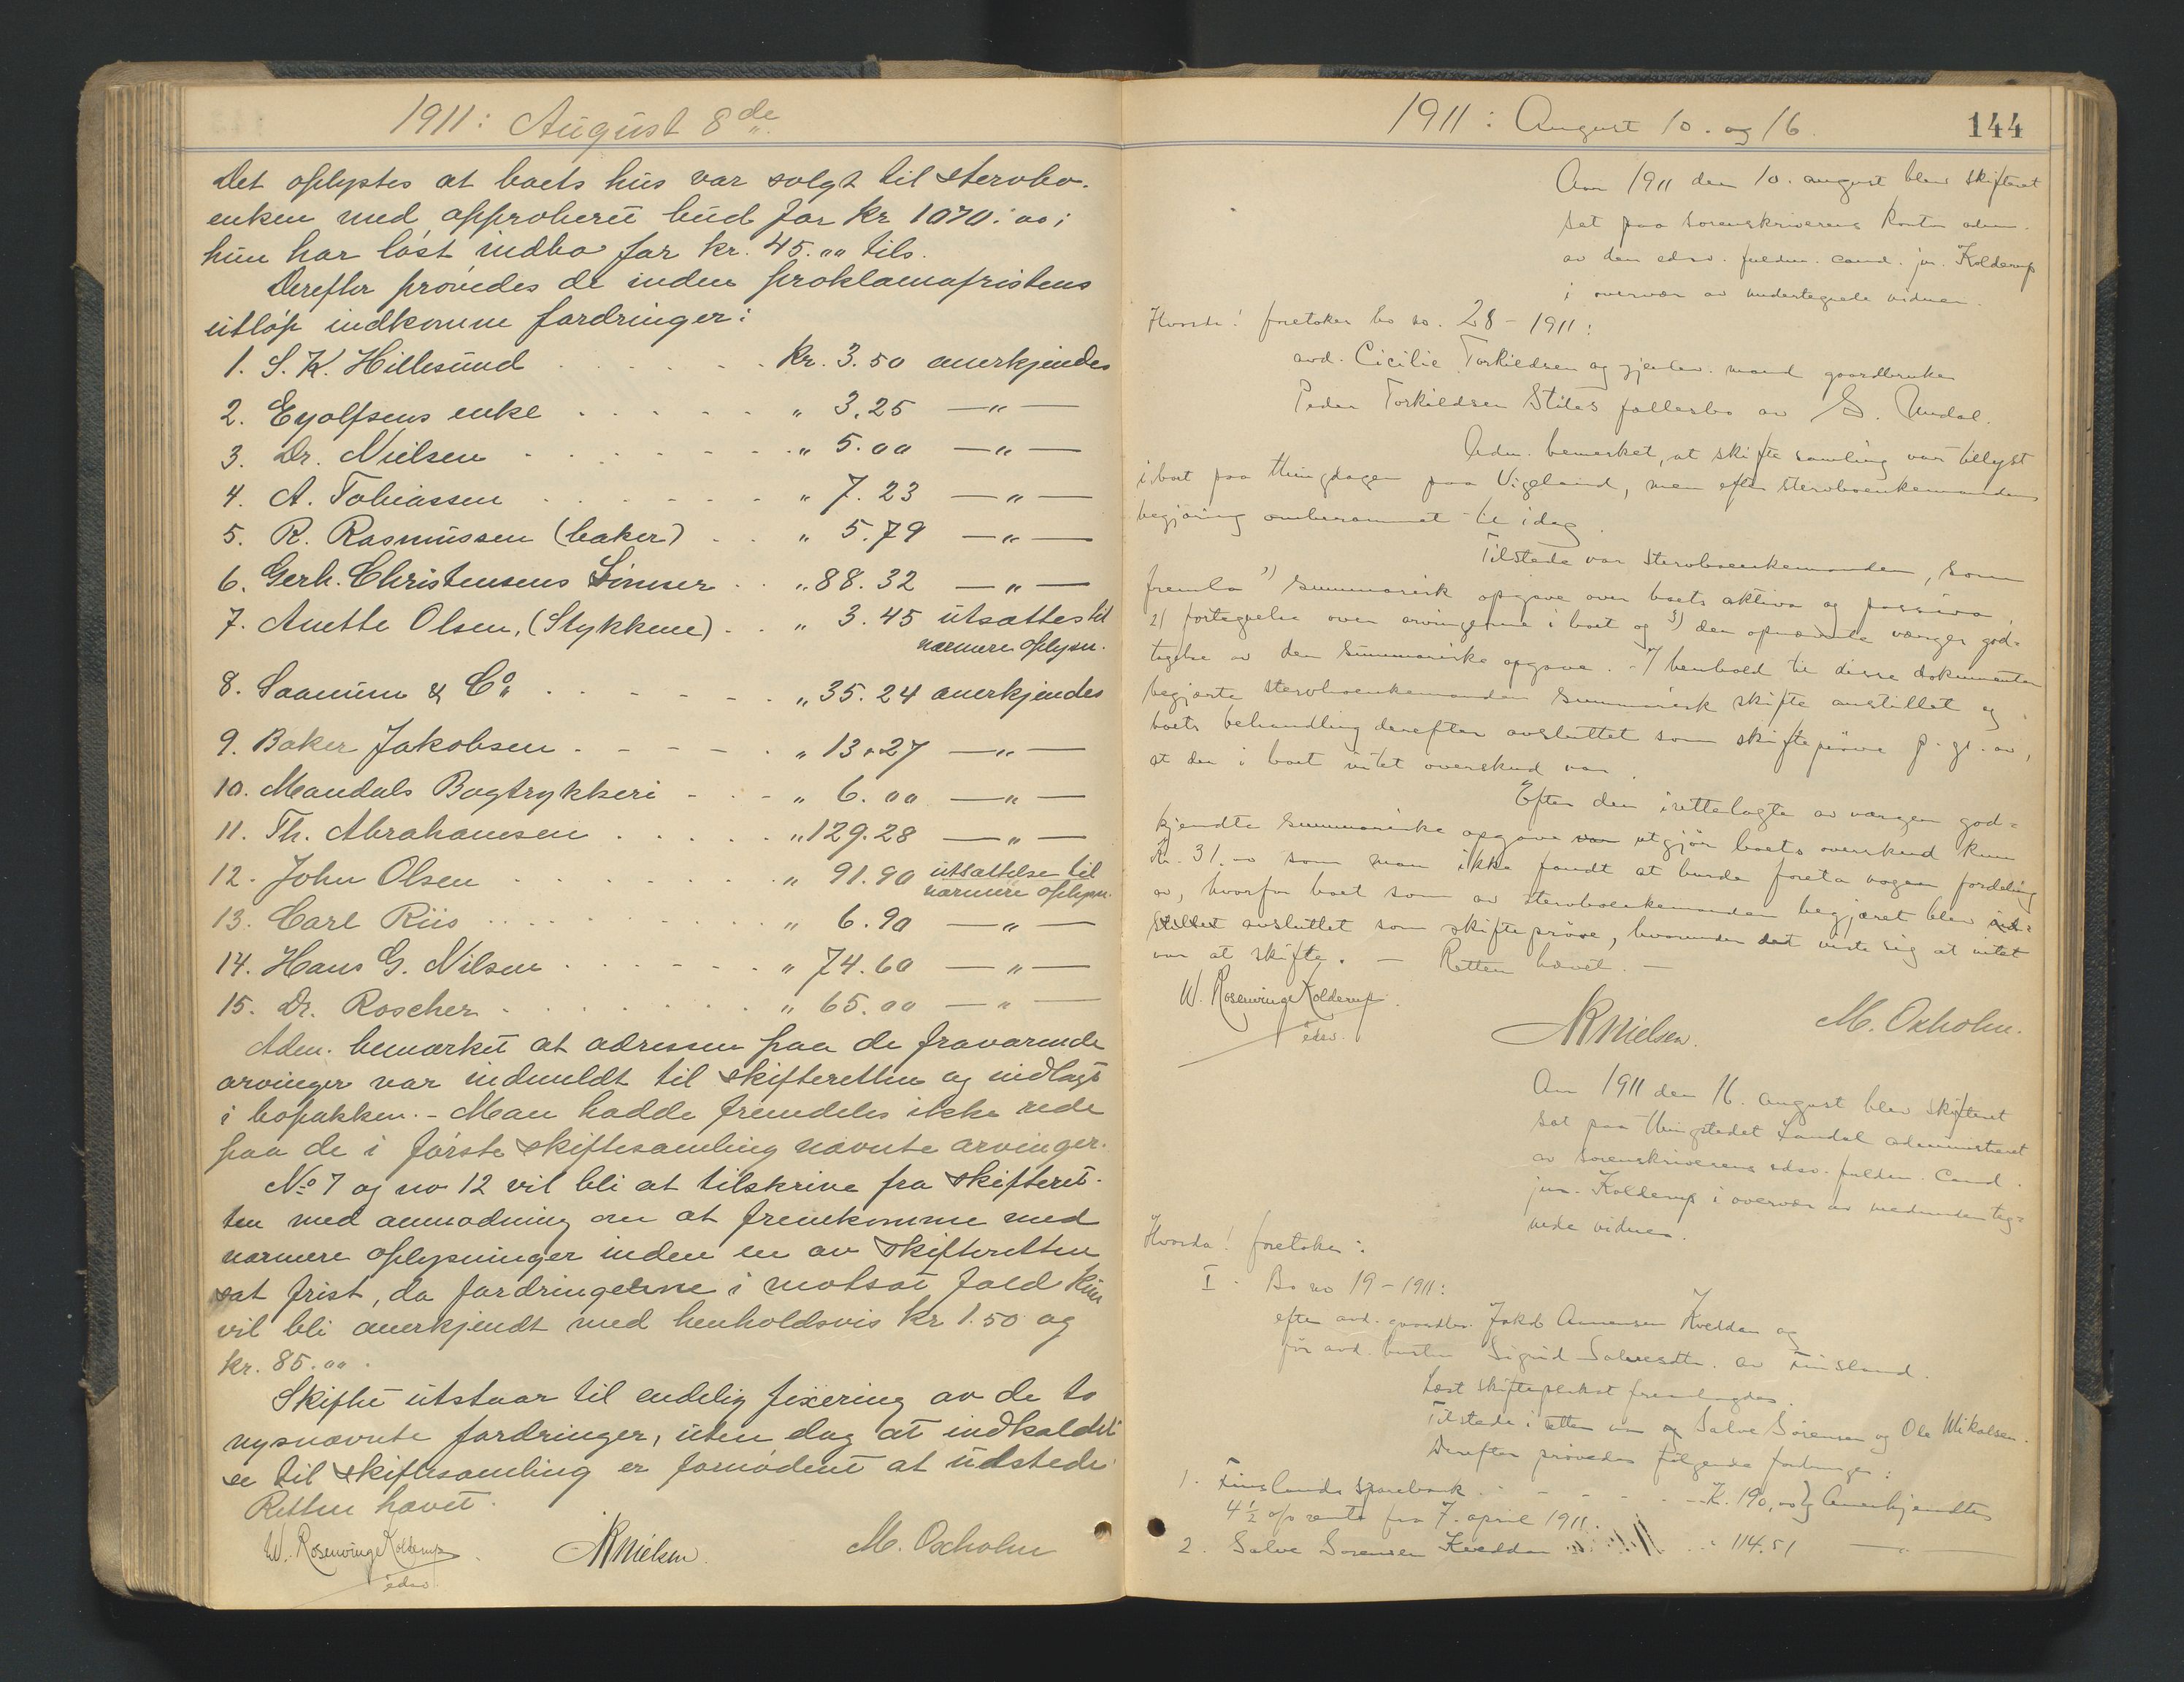 1911: August 8de
Det oplystes at boets hus var solgt til stervbo-
enken med approberet bud for kr 1070.00;
hun har løst indbo for kr. 45.00 tils.
Derefter prøvedes de inden proklamafristens
utløp indkomne fordringer:
1. S. K. Hillesund . . . . . Kr. 3.50 anerkjendes
2. Eyolfsens enke . . . . . " 3.25 —"—
3. Dr. Nielsen . . . . . " 5.00 —"—
4. A. Tobiassen . . . . . " 7.23 —"—
5. R. Rasmussen (baker) . . " 5.79 —"—
6. Gerh. Christensens Sønner . . " 88.32 —"—
7. Anette Olsen, (Stykkene) . . " 3.45 utsættes til
nærmere oplysn.
8. Saanum & Co. . . . . . " 35.24 anerkjendes
9. Baker Jakobsen . . . . . " 13.27 —"—
10. Mandals Bogtrykkeri . . . " 6.00 —"—
11. Th. Abrahamsen . . . . . " 129.28 —"—
12. John Olsen . . . . . " 91.90 utsættelse til
nærmere oplysn.
13. Carl Riis . . . . . " 6.90 —"—
14. Hans G. Nilsen . . . . . " 74.60 —"—
15. Dr. Roscher . . . . . " 65.00 —"—
Adm. bemærket at adressen paa de fraværende
arvinger var indmeldt til skifteretten og indlagt
i bopakken. - Man hadde fremdeles ikke rede
paa de i første skiftesamling nævnte arvinger.
No 7 og no 12 vil bli at tilskrive fra skifteret-
ten med anmodning om at fremkomme med
nærmere oplysninger inden en av skifteretten
sat frist, da fordringerne i motsat fald kun
vil bli anerkjendt med henholdsvis kr 1.50 og
kr. 85.00.
Skiftet utstaar til endelig fixering av de to
nysnævnte fordringer, uten dog at indkaldel-
se til skiftesamling er fornødent at utstede.
Retten hævet.
W. Rosenvinge Kolderup
edsv.
NR Nielsen.
M. Oxholm
1911: August 10. og 16.
144
Aar 1911 den 10. august blev skifteret
sat paa sorenskriverens kontor adm.
av den edsv. fuldm. cand. jur. Kolderup
i overvær av undertegnede vidner.
Hvorda! foretokes bo no. 28 - 1911:
avd. Cicilie Torkildsen og gjenlev. mand gaardbruker
Peder Torkildsen Stiles fællesbo av S. Undal.
Adm. bemerket, at skiftesamling var tillyst
i boet paa thingdagen paa Vigeland, men efter stervboenkemandens
begjæring omberammet til idag.
Tilstede var stervboenkemanden, som
fremla 1) summarisk opgave over boets aktiva og passiva,
2) fortegnelse over arvingerne i boet og 3) den opnævnte værges god-
tagelse av den summariske opgave. - I henhold til disse dokumenter
begjærte stervboenkemanden summarisk skifte anstillet og
boets behandling derefter avsluttet som skifteprøve p. gr. av,
at der i boet intet overskud var.
Efter den irettelagte av værgen god-
kjendte summariske opgave var utgjør boets overskud kun
kr. 31.00 som man ikke fandt at burde foreta nogen fordeling
av, hvorfor boet som av stervboenkemanden begjæret blev ind-
stillet avsluttet som skifteprøve, hvorunder det viste sig at intet
var at skifte. — Retten hævet. —
W. Rosenvinge Kolderup.
edsv.
NR Nielsen.
M. Oxholm.
Aar 1911 den 16. august blev skifteret
sat paa thingstedet Laudal administreret
av sorenskriverens edsv. fuldm. cand.
jur. Kolderup i overvær av medunderteg-
nede vidner.
Hvorda! foretokes:
I. Bo no 19 - 1911:
efter avd. gaardbr. Jakob Aanensen Kveddan og
før avd. hustru Sigrid Salvesdtr. av Finsland.
Læst skifteplakat fremlagdes.
Tilstede i retten var og Salve Sørensen og Ole Mikalsen.
Derefter prøvedes følgende fordringer:
1. Finslands sparebank . . . . . K. 190,00 } Anerkjendtes
4 1/2 o/o rente fra 7. april 1911.
2. Salve Sørensen Kveddan . . . " 114.51 —"—